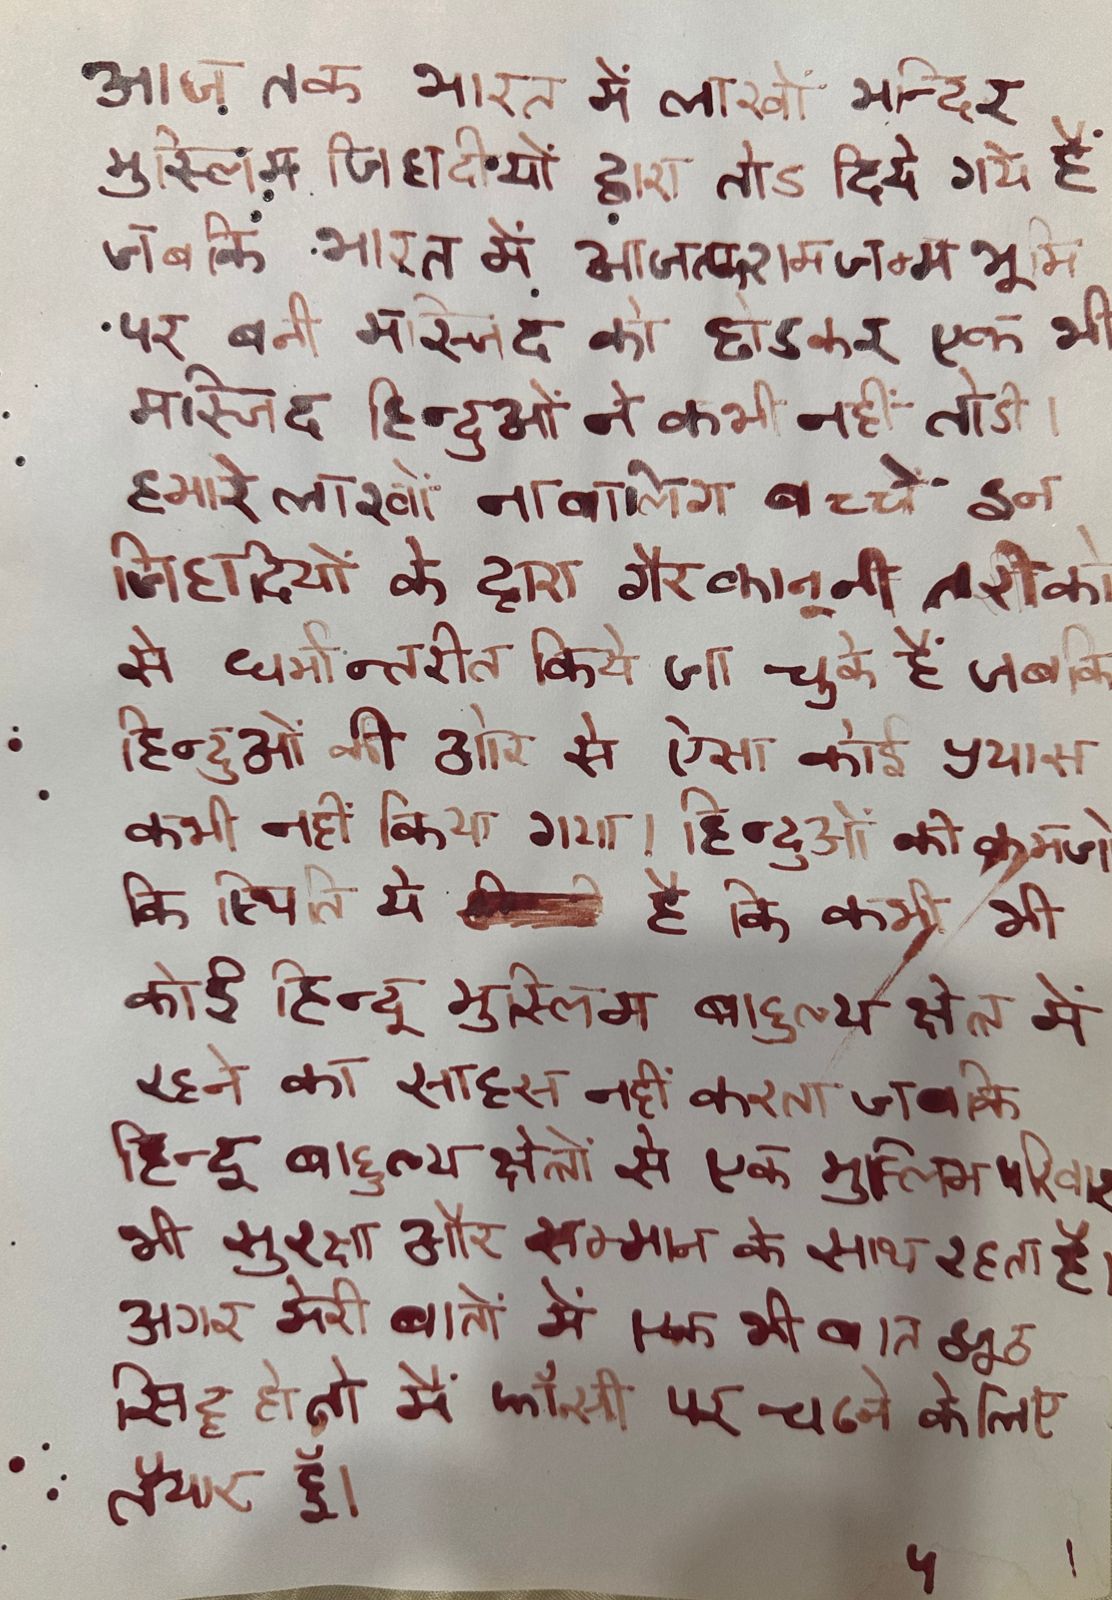 आज तक भारत में लाखों मन्दिर
मुस्लिम जिहादीयों द्वारा तोड दिये गये हैं
जबकि भारत में आजतक रामजन्म भूमि
पर बनी मस्जिद को छोडकर एक भी
मस्जिद हिन्दुओं ने कभी नहीं तोडी।
हमारे लाखों नाबालिग बच्चें इन
जिहादियों के द्वारा गैरकानूनी तरीको
से धर्मान्तरीत किये जा चुके हैं जबकि
हिन्दुओं की ओर से ऐसा कोई प्रयास
कभी नहीं किया गया। हिन्दुओं की कमजो
कि स्थिति ये है कि कभी भी
कोई हिन्दू मुस्लिम बाहुल्य क्षेत्र में
रहने का साहस नहीं करता जबकि
हिन्दू बाहुल्य क्षेत्रों से एक मुस्लिम परिवार
भी सुरक्षा और सम्मान के साथ रहता है।
अगर मेरी बातों में एक भी बात झूठ
सिद्ध हो तो मैं फाँसी पर चढने के लिए
तैयार हूँ।
५